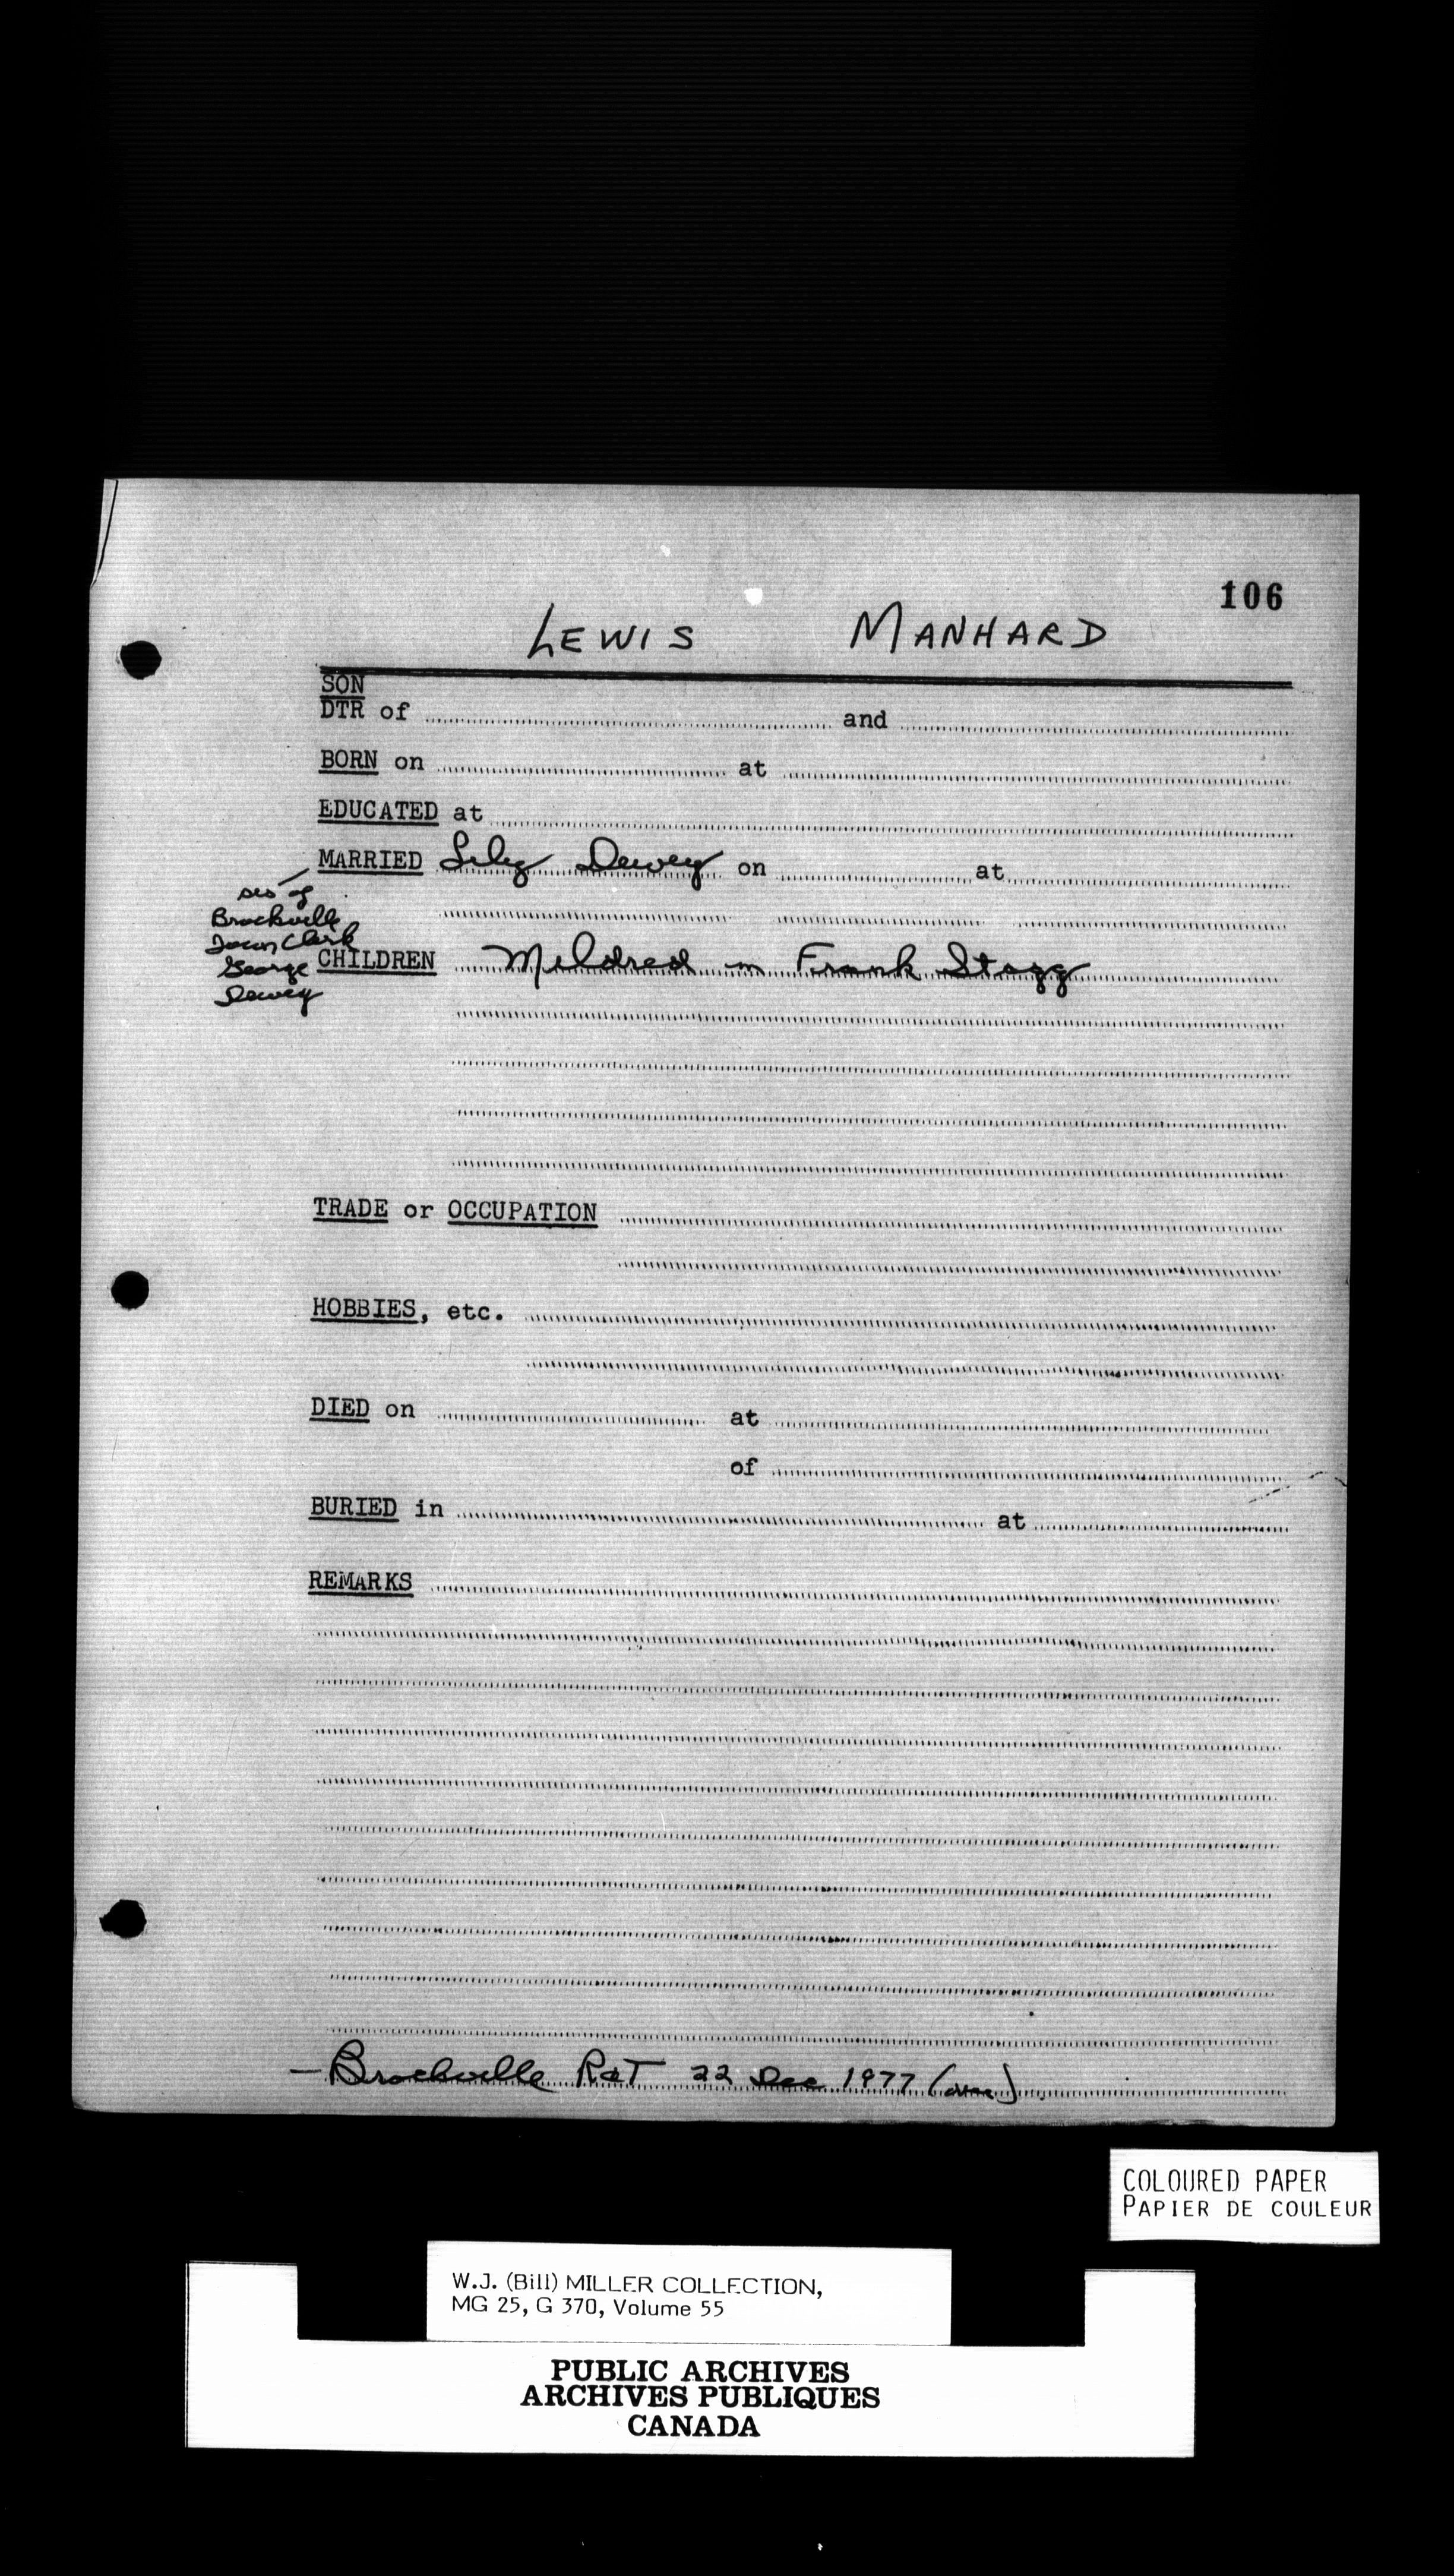 106
LEWIS MANHARD
SON
DTR of and
BORN on at
EDUCATED at
MARRIED Lily Dewey on at
sis of
Brockville
Town Clerk
George
Dewey
CHILDREN Mildred m Frank Stagg
TRADE or OCCUPATION
HOBBIES, etc.
DIED on at
of
BURIED in at
REMARKS
— Brockville R&T 22 Dec 1977 (over)
COLOURED PAPER
PAPIER DE COULEUR
W.J. (Bill) MILLER COLLECTION,
MG 25, G 370, Volume 55
PUBLIC ARCHIVES
ARCHIVES PUBLIQUES
CANADA